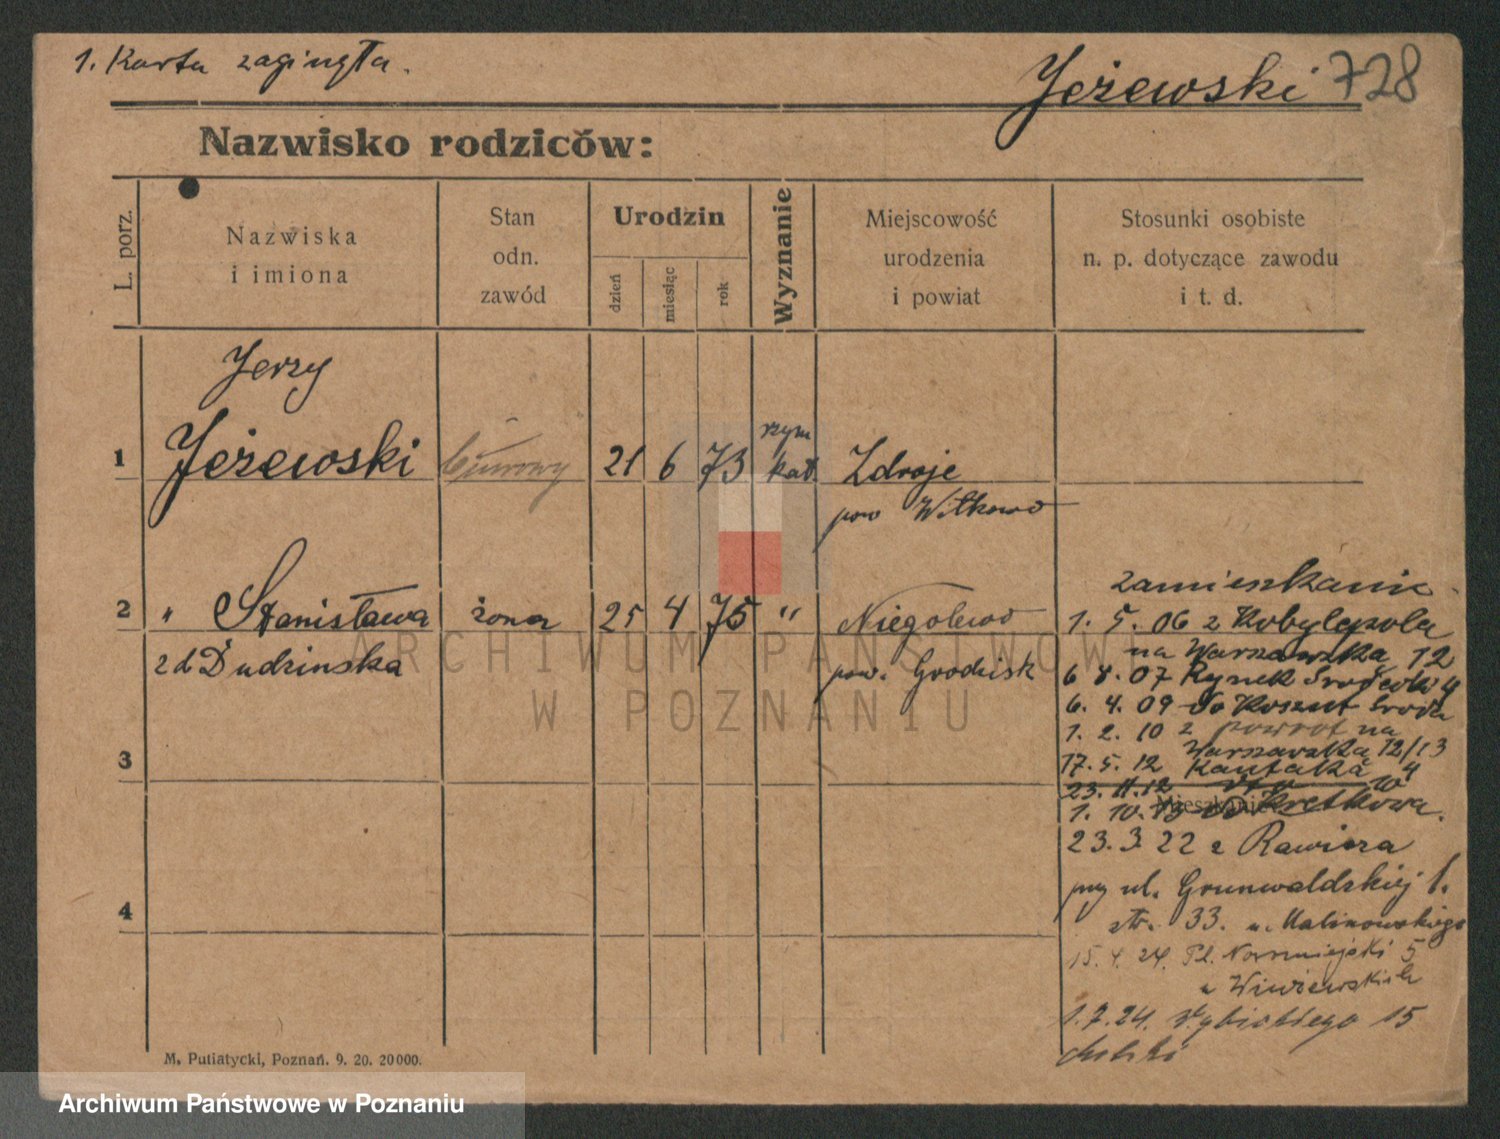 1. Karta zaginęła.
Jeżewski 728
Nazwisko rodziców:
L. porz.
Nazwiska
i imiona
Stan
odn.
zawód
Urodzin
dzień
miesiąc
rok
Wyznanie
Miejscowość
urodzenia
i powiat
Stosunki osobiste
n. p. dotyczące zawodu
i t. d.
Jerzy
1 Jeżewski 21 6 73 rzym kat. Zdroje
pow Witkowo
zamieszkanie
2 " Stanisława żona 25 4 75 " Niegolewo
z d Dudzinska pow. Grodzisk
1. 5. 06 z Kobylepola
na Warszawską 12
6. 4. 09 do Środa
1. 2. 10 z powrot na
Warszawską 12/13
17. 5. 12
23. 11. 12
Mieszkanie
1. 10.
23. 3. 22 z Rawicza
przy ul. Grunwaldzkiej
33. u. Kalinowskiego
15. 4. 24. Pl. Nowomiejski 5
u
1. 7. 24. 15
3
4
M. Putiatycki, Poznań. 9. 20. 20000.
ARCHIWUM PAŃSTWOWE
W POZNANIU
Archiwum Państwowe w Poznaniu